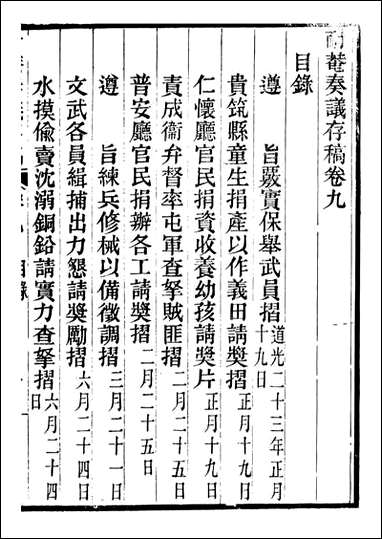 耐菴奏議存稿卷九
目錄
遵　旨覈實保舉武員摺道光二十三年正月十九日
貴筑縣童生捐產以作義田請獎摺正月十九日
仁懷廳官民捐資收養幼孩請獎片正月十九日
責成衞弁督率屯軍查拏賊匪摺二月二十五日
普安廳官民捐辦各工請獎摺二月二十五日
遵　旨練兵修械以備徵調摺三月二十一日
文武各員緝捕出力懇請獎勵摺六月二十四日
水摸偷賣沈溺銅鉛請實力查拏摺六月二十四日
目錄